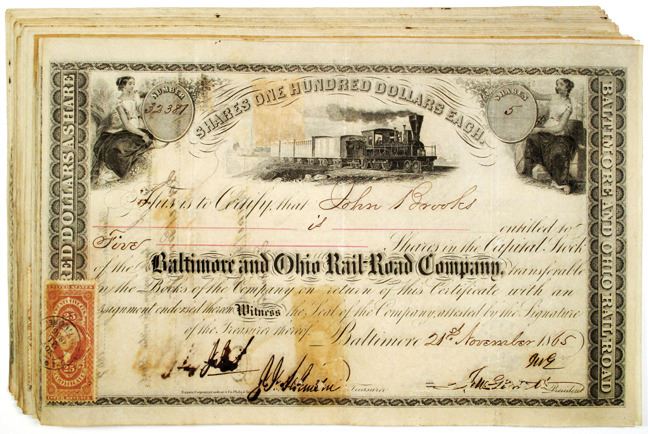 NUMBER
32381
SHARES ONE HUNDRED DOLLARS EACH.
SHARES
5
RED DOLLARS A SHARE
BALTIMORE AND OHIO RAILROAD
This is to Certify, that John Brooks
is entitled to
Five Shares in the Capital Stock
of the Baltimore and Ohio Rail-Road Company, transferable
on the Books of the Company on return of this Certificate with an
assignment endorsed thereon Witness the Seal of the Company, attested by the Signature
of the Treasurer thereof Baltimore 21st November 1865
Treasurer
President
25
25